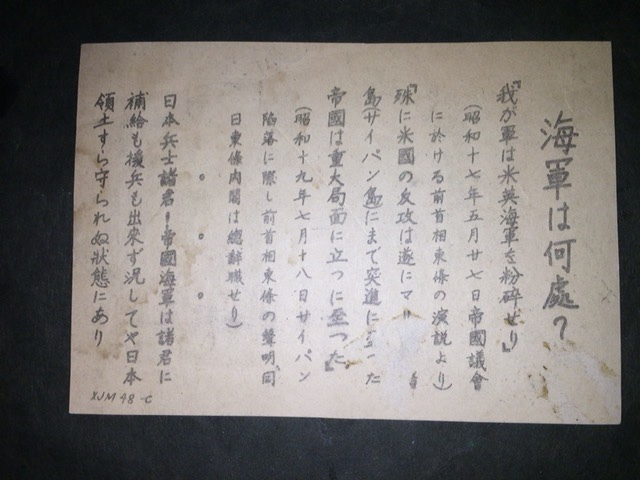 海軍は何處？
『我が軍は米英海軍を粉碎せり』
（昭和十七年五月廿七日帝國議會
に於ける前首相東條の演説より）
『殊に米國の反攻は遂にマリ
島サイパン島にまで突進に至った
帝國は重大局面に立つに至った』
（昭和十九年七月十八日サイパン
陥落に際し前首相東條の聲明同
日東條内閣は總辭職せり）
日本兵士諸君！帝國海軍は諸君に
補給も援兵も出來ず況してや日本
領土すら守られぬ狀態にあり
XJM 48-C